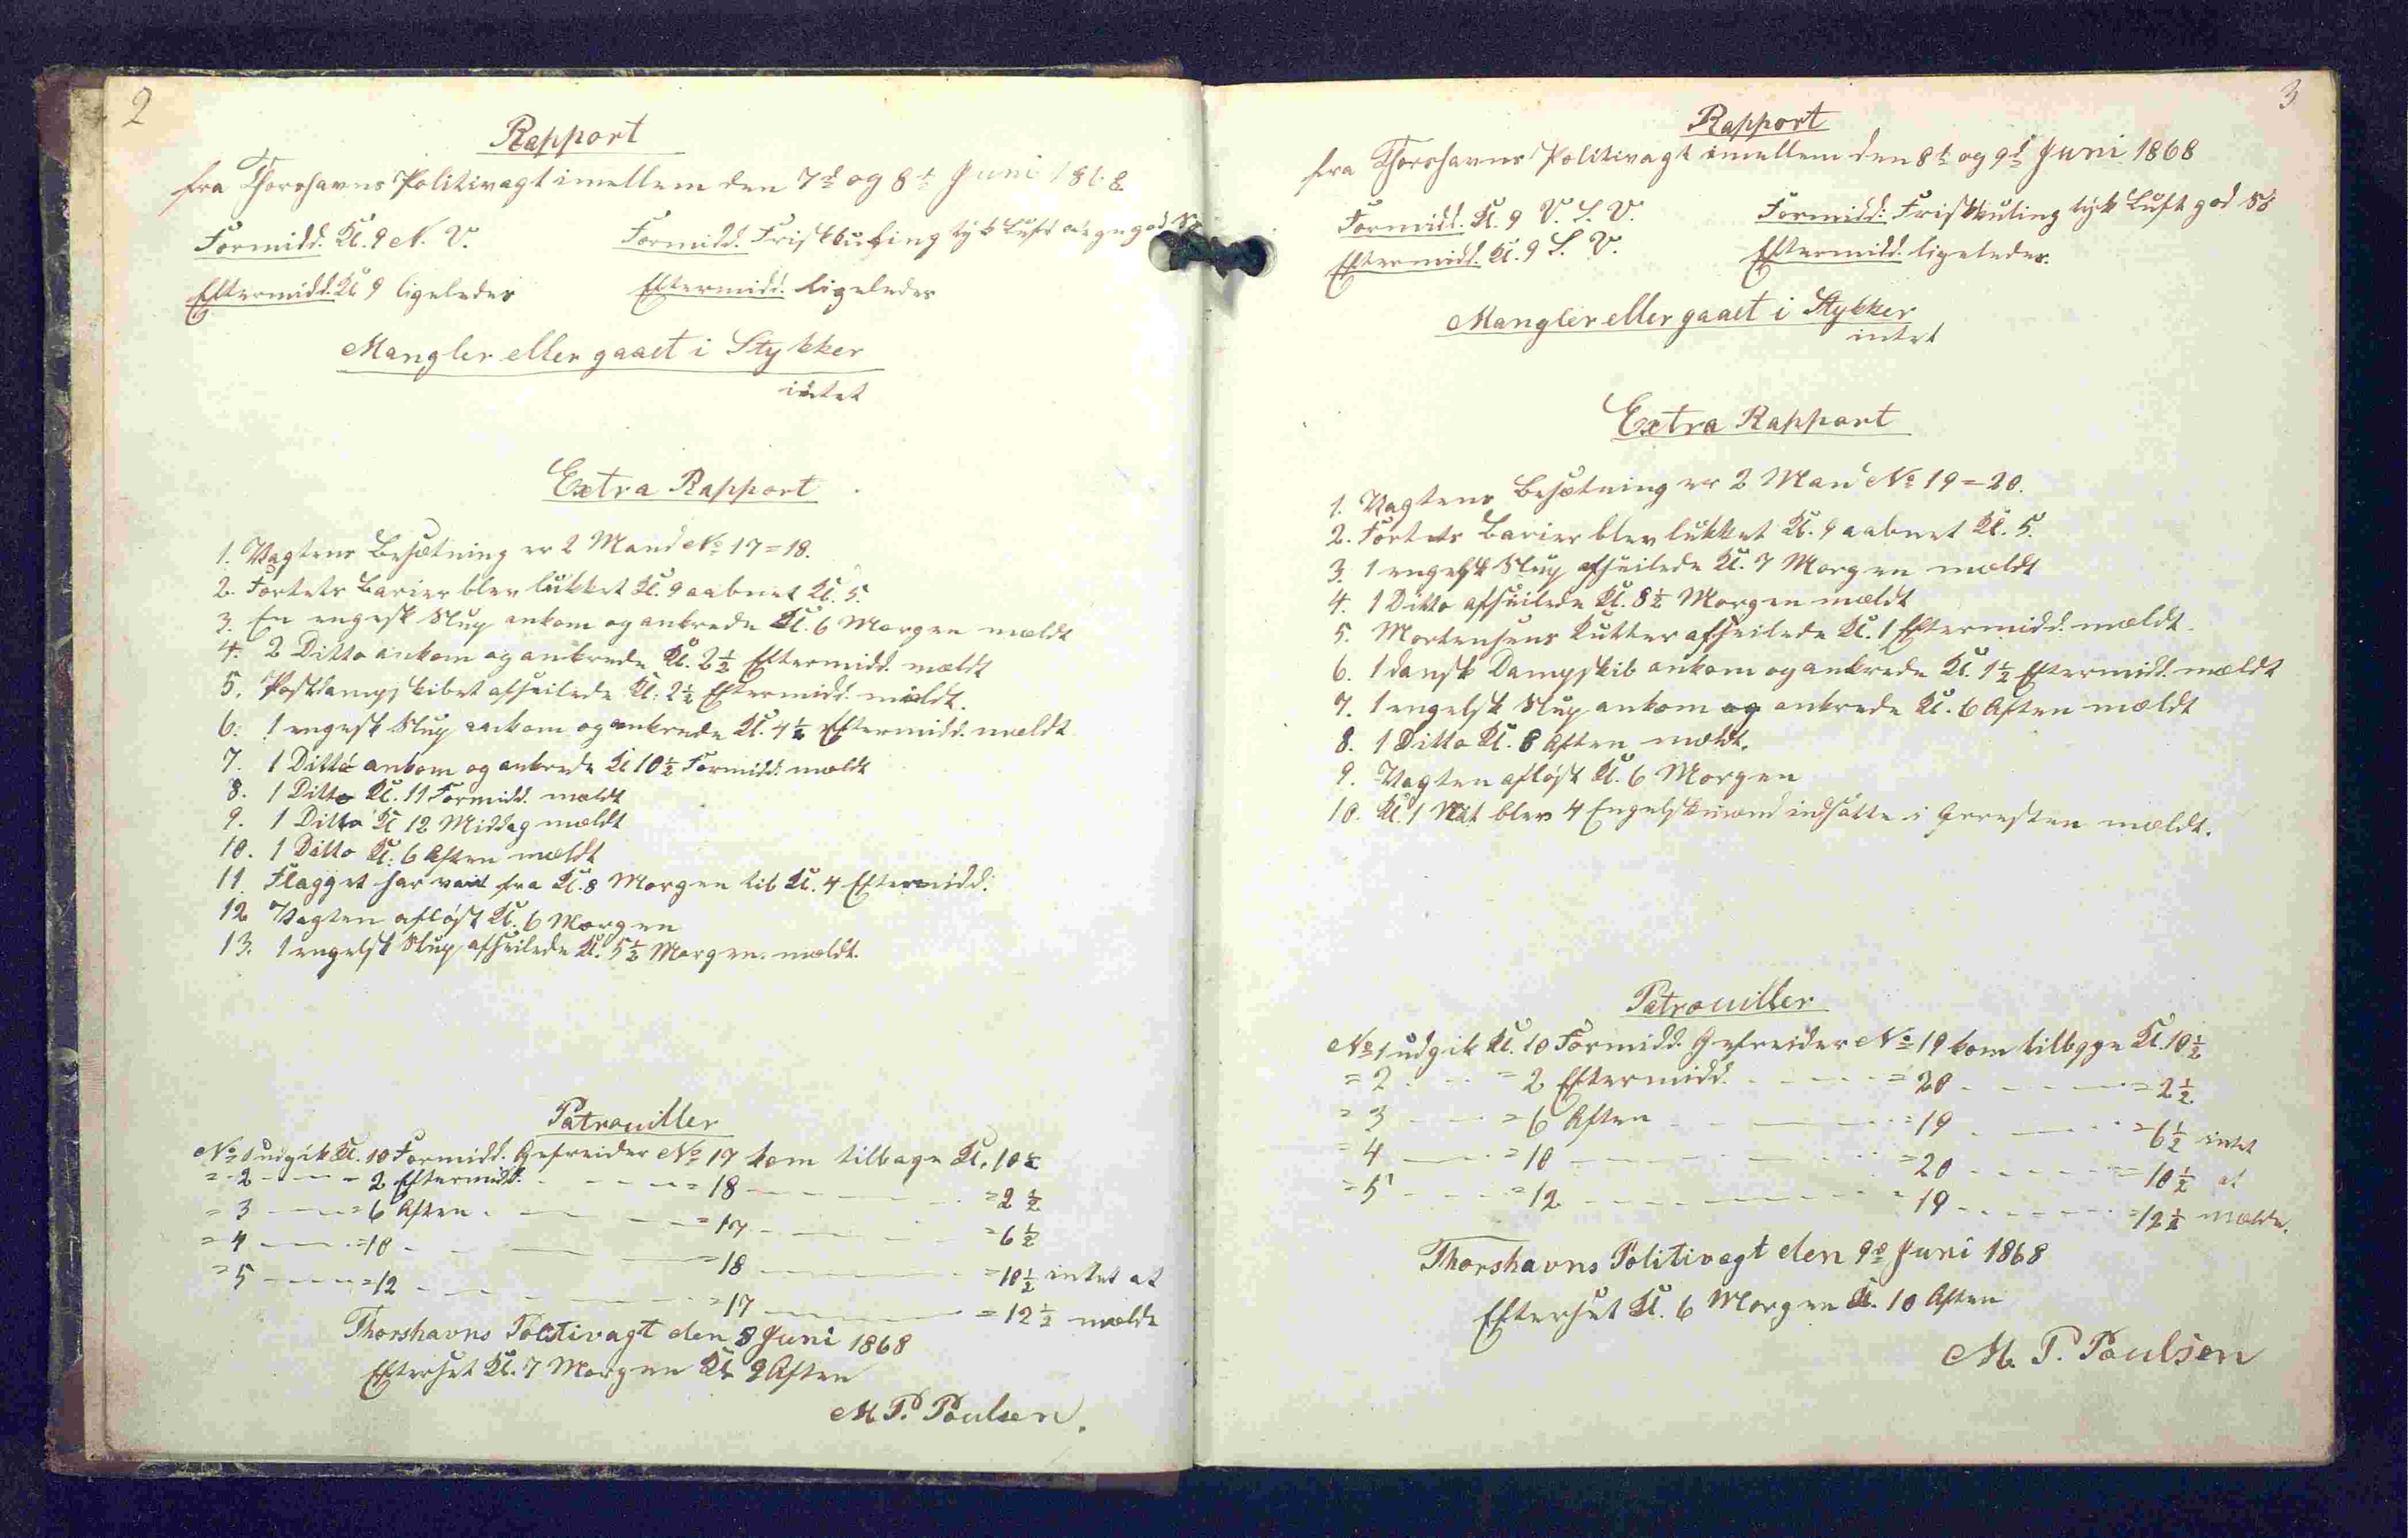 2
Rapport
fra Thorshavns Politivagt imellem den 7d og 8d Juni 1868
Formidd. Kl. 9 N. V.
Formidd. Friskkuling tyk Luft god
Eftermidd. Kl 9 ligeledes
Eftermidd. ligeledes
Mangler eller gaaet i Stykker
intet
Extra Rapport
1. Vagtens Besætning er 2 Mand No 17 = 18.
2. Fortets Barier blev lukket Kl. 9 aabnet Kl. 5.
3. En engesk Slup ankom og ankrede Kl. 6 Morgen meldt
4. 2 Ditto ankom og ankrede Kl. 2½ Eftermidd. mældt
5. Postdampskibet afseilede Kl. 2½ Eftermidd. mældt.
6. 1 engesk Slup ankom og ankrede Kl. 4½ Eftermidd. mældt
7. 1 Ditto ankom og ankrede Kl 10½ Formidd. mældt
8. 1 Ditto Kl. 11 Formidd. mældt
9. 1 Ditto Kl 12 Middag mældt
10. 1 Ditto Kl. 6 Aften mældt
11. Flagget har vaiet fra Kl. 8 Morgen til Kl. 4 Eftermidd.
12 Vagten afløst Kl. 6 Morgen
13. 1 engelsk Slup afseilede Kl. 5½ Morgen. mældt.
Patrouiller
No 1 udgik Kl. 10 Formidd. Gefreider No 17 kom tilbage Kl. 10½
= 2 - - - - 2 Eftermidd. - - - - = 18 - - - - = 2½
= 3 - - - = 6 Aften - - - - = 17 - - - - = 6½
= 4 - - - = 10 - - - - = 18 - - - - = 10½ intet at
= 5 - - - = 12 - - - - = 17 - - - - = 12½ mælde
Thorshavns Politivagt den 8 Juni 1868
Efterset Kl. 7 Morgen Kl. 9 Aften
M. P. Poulsen.
3
Rapport
fra Thorshavns Politivagt imellem den 8d og 9d Juni 1868
Formidd. Kl. 9 V. S. V.
Formidd. Friskkuling tyk Luft god Sö
Eftermidd. Kl. 9 S. V.
Eftermidd. ligeledes.
Mangler eller gaaet i Stykker
intet
Extra Rapport
1. Vagtens Besætning er 2 Man No 19 = 20.
2. Fortets Barier blev lukket Kl. 9 aabnet Kl. 5.
3. 1 engelsk Slup afseilede Kl. 7 Morgen mældt
4. 1 Ditto afseilede Kl. 8½ Morgen mældt
5. Mortensens Kutter afseilede Kl. 1 Eftermidd. mældt.
6. 1 dansk Dampskib ankom og ankrede Kl. 1½ Eftermidd. mældt
7. 1 engelsk Slup ankom og ankrede Kl. 6 Aften mældt
8. 1 Ditto Kl. 8 Aften mældt.
9. Vagten afløst Kl. 6 Morgen
10. Kl. 1 Nat blev 4 Engelskmænd indsatte i Arresten mældt.
Patrouiller
No 1 udgik Kl. 10 Formidd. Gefreider No 19 kom tilbage Kl. 10½
= 2 - - - = 2 Eftermidd. - - - - = 20 - - - - = 2½
= 3 - - - = 6 Aften - - - - = 19 - - - - = 6½ intet
= 4 - - - = 10 - - - - = 20 - - - - = 10½ at
= 5 - - - = 12 - - - - = 19 - - - - = 12½ mælde.
Thorshavns Politivagt den 9d Juni 1868
Efterset Kl. 6 Morgen Kl. 10 Aften
M. P. Poulsen